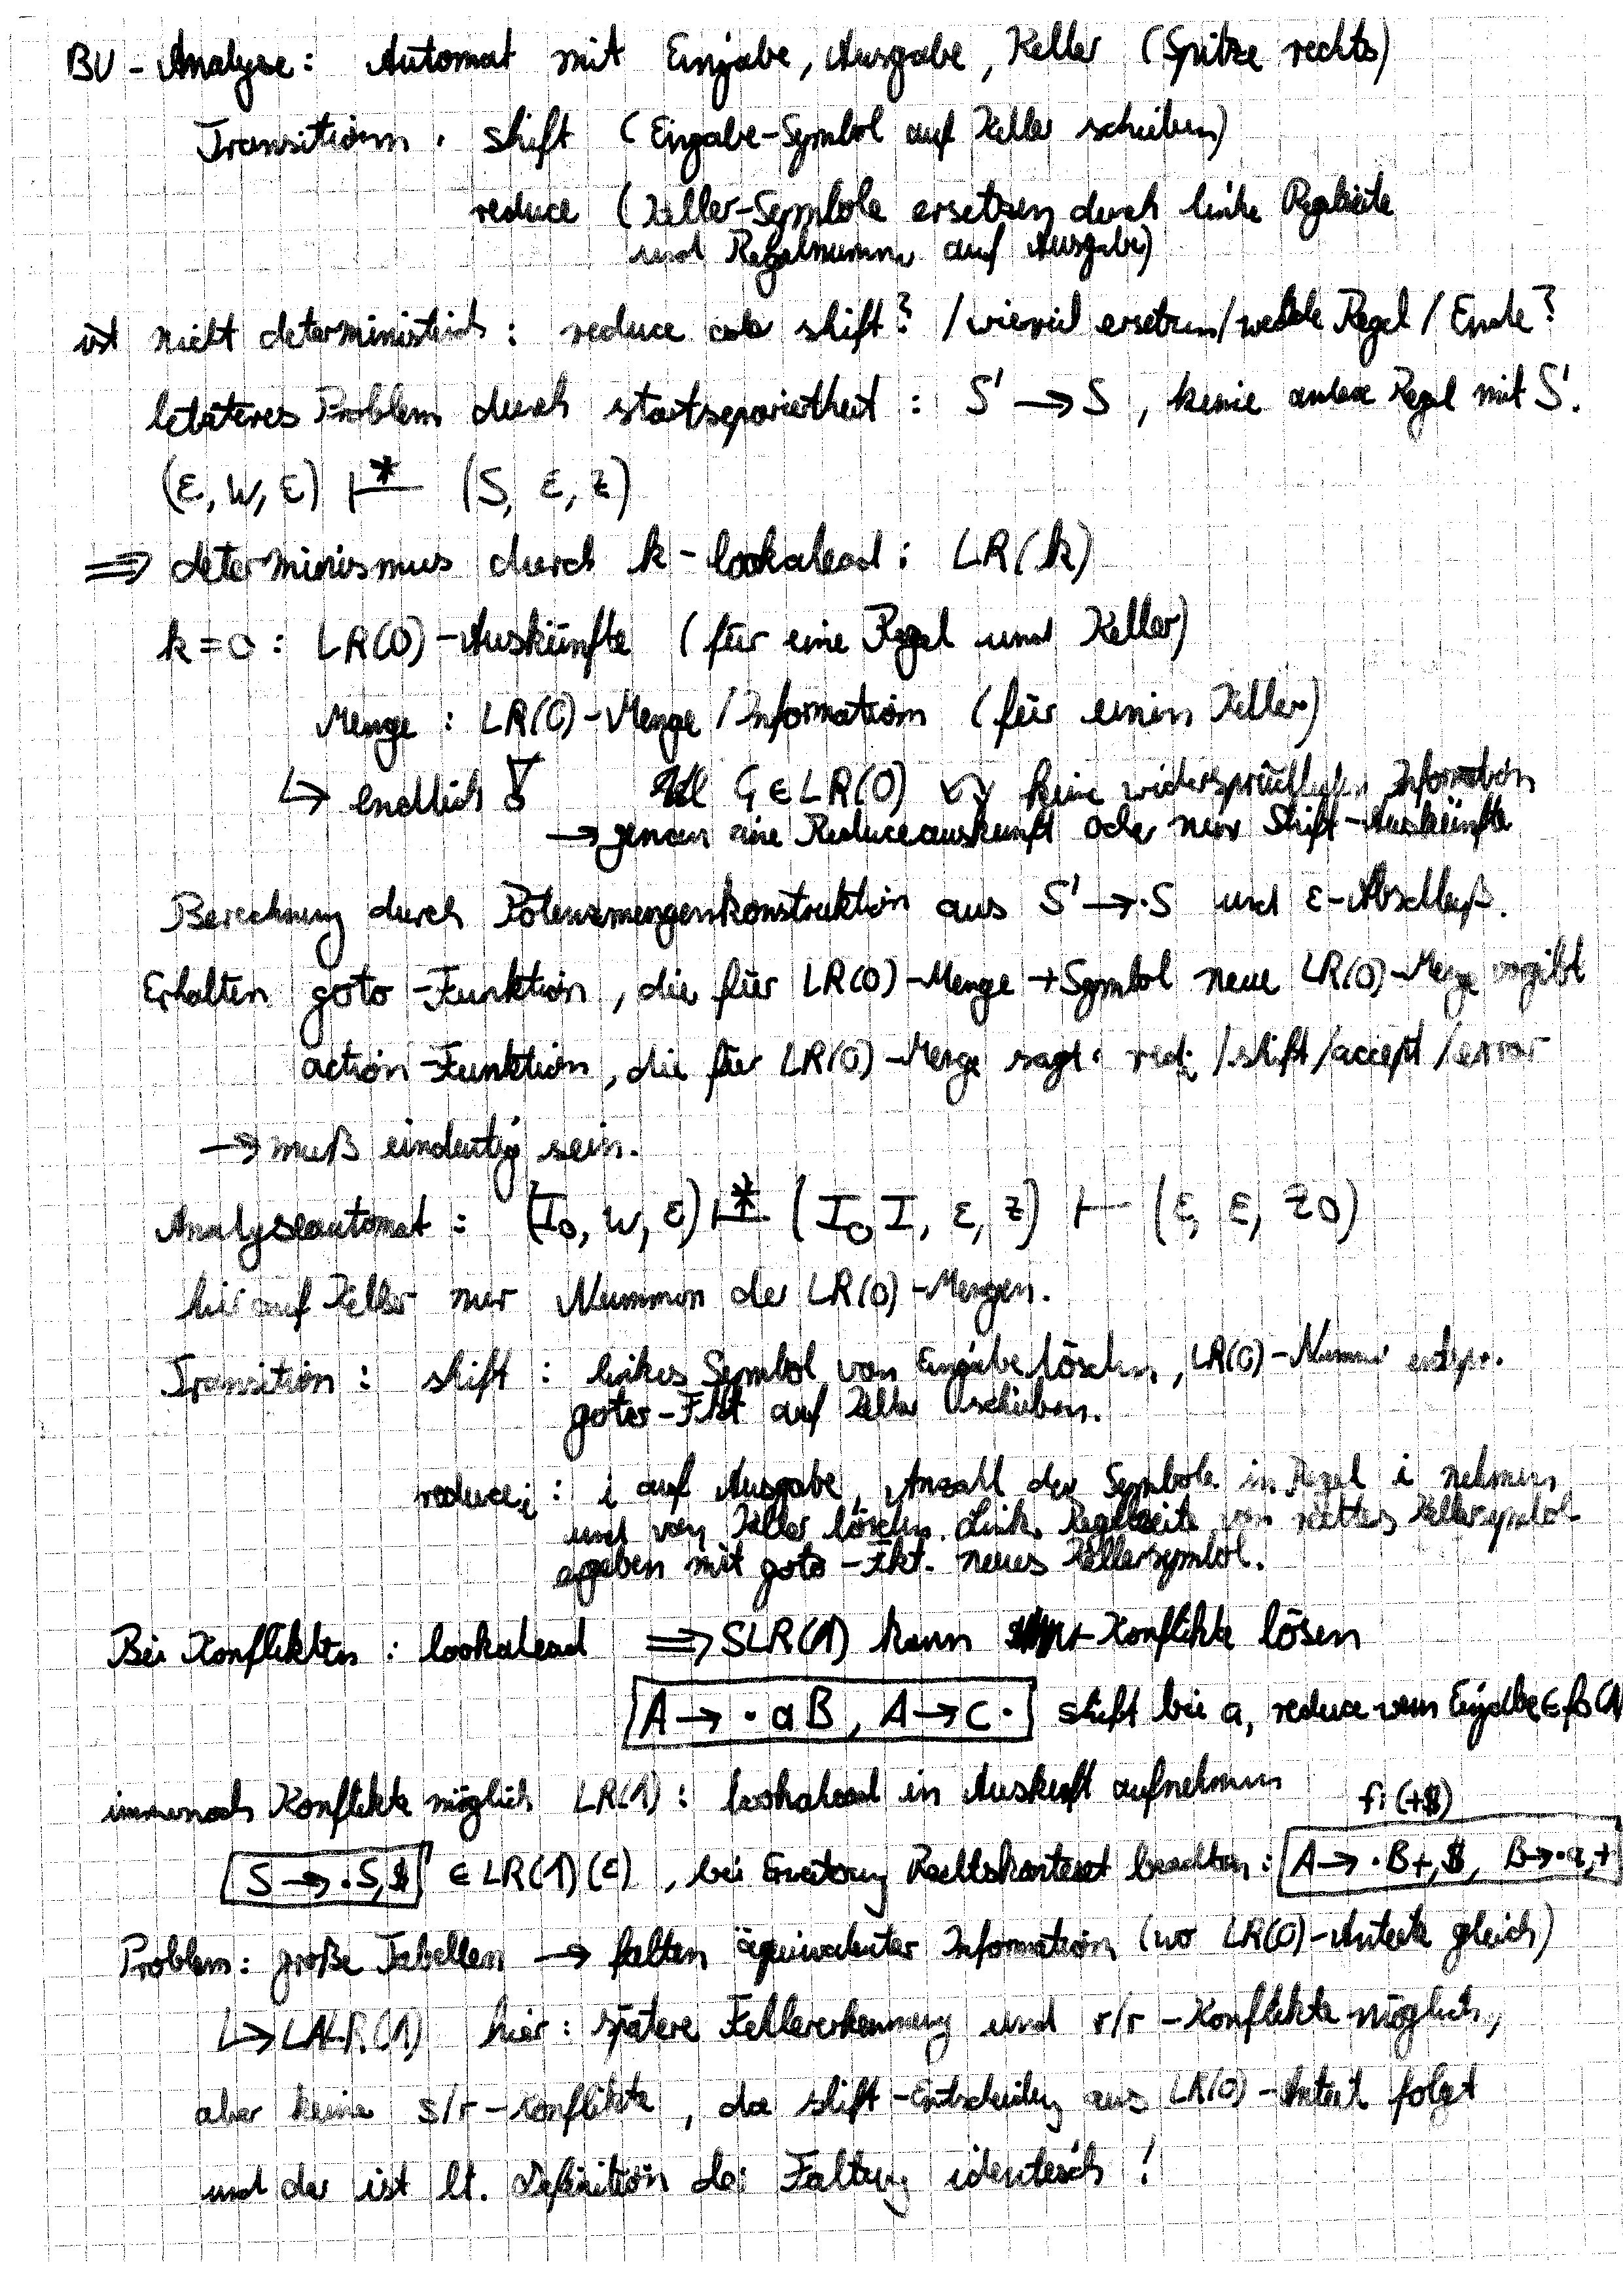 BU - Analyse: Automat mit Eingabe, Ausgabe, Keller (Spitze rechts)
Transitionen: shift (Eingabe-Symbol auf Keller schieben)
reduce (Keller-Symbole ersetzen durch linke Regelseite
und Regelnummer auf Ausgabe)
ist nicht deterministisch: reduce oder shift? / wieviel ersetzen / welche Regel / Ende?
letzteres Problem durch startsepariertheit: S' → S, keine andere Regel mit S'.
(ε, w, ε) ⊢* (S, ε, z)
⇒ determinismus durch k-lookahead: LR(k)
k=0: LR(0)-Auskünfte (für eine Regel und Keller)
Menge: LR(0)-Menge / Information (für einen Keller)
↳ endlich! G ∈ LR(0) ↔ keine widersprüchlichen Information
→ genau eine Reduceauskunft oder nur Shift-Auskünfte
Berechnung durch Potenzmengenkonstruktion aus S' → ·S und ε-Abschluß.
Erhalten goto-Funktion, die für LR(0)-Menge + Symbol neue LR(0)-Menge angibt
action-Funktion, die für LR(0)-Menge sagt: redi / shift / accept / error
→ muß eindeutig sein.
Analyseautomat: (I₀, w, ε) ⊢* (I₀ I, ε, z) ⊢ (ε, ε, z0)
hier auf Keller nur Nummern der LR(0)-Mengen.
Transition: shift: linkes Symbol von Eingabe löschen, LR(0)-Nummer entspr.
goto-Fkt auf Keller schieben.
reduceᵢ: i auf Ausgabe, Anzahl der Symbole in Regel i nehmen
und von Keller löschen. Linke Regelseite von rechtes Kellersymbol
ergeben mit goto-Fkt. neues Kellersymbol.
Bei Konflikten: lookahead ⇒ SLR(1) kann Konflikte lösen
A → ·aB, A → c· shift bei a, reduce wenn Eingabe ∈ fo(A
immernoch Konflikte möglich LR(1): lookahead in Auskunft aufnehmen
fi(+$)
S → ·S,$ ∈ LR(1)(ε), bei Rechtskontext beachten: A → ·B+,$, B → ·a,+
Problem: große Tabellen → falten äquivalenter Information (wo LR(0)-Anteile gleich)
↳ LALR(1) hier: spätere Fehlererkennung und r/r-Konflikte möglich,
aber keine s/r-Konflikte, da shift-Entscheidung aus LR(0)-Anteil folgt
und der ist lt. Definition der Faltung identisch!